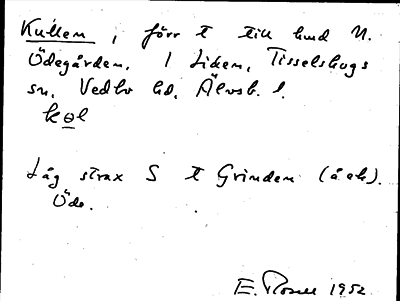 Kullen, förr t till hmd N.
Ödegården, i Liden, Tisselskogs
sn, Vedbo hd, Älvsb. l.
kɵl
Låg strax S t Grinden (å ek).
Öde.
E. Rosell 1952